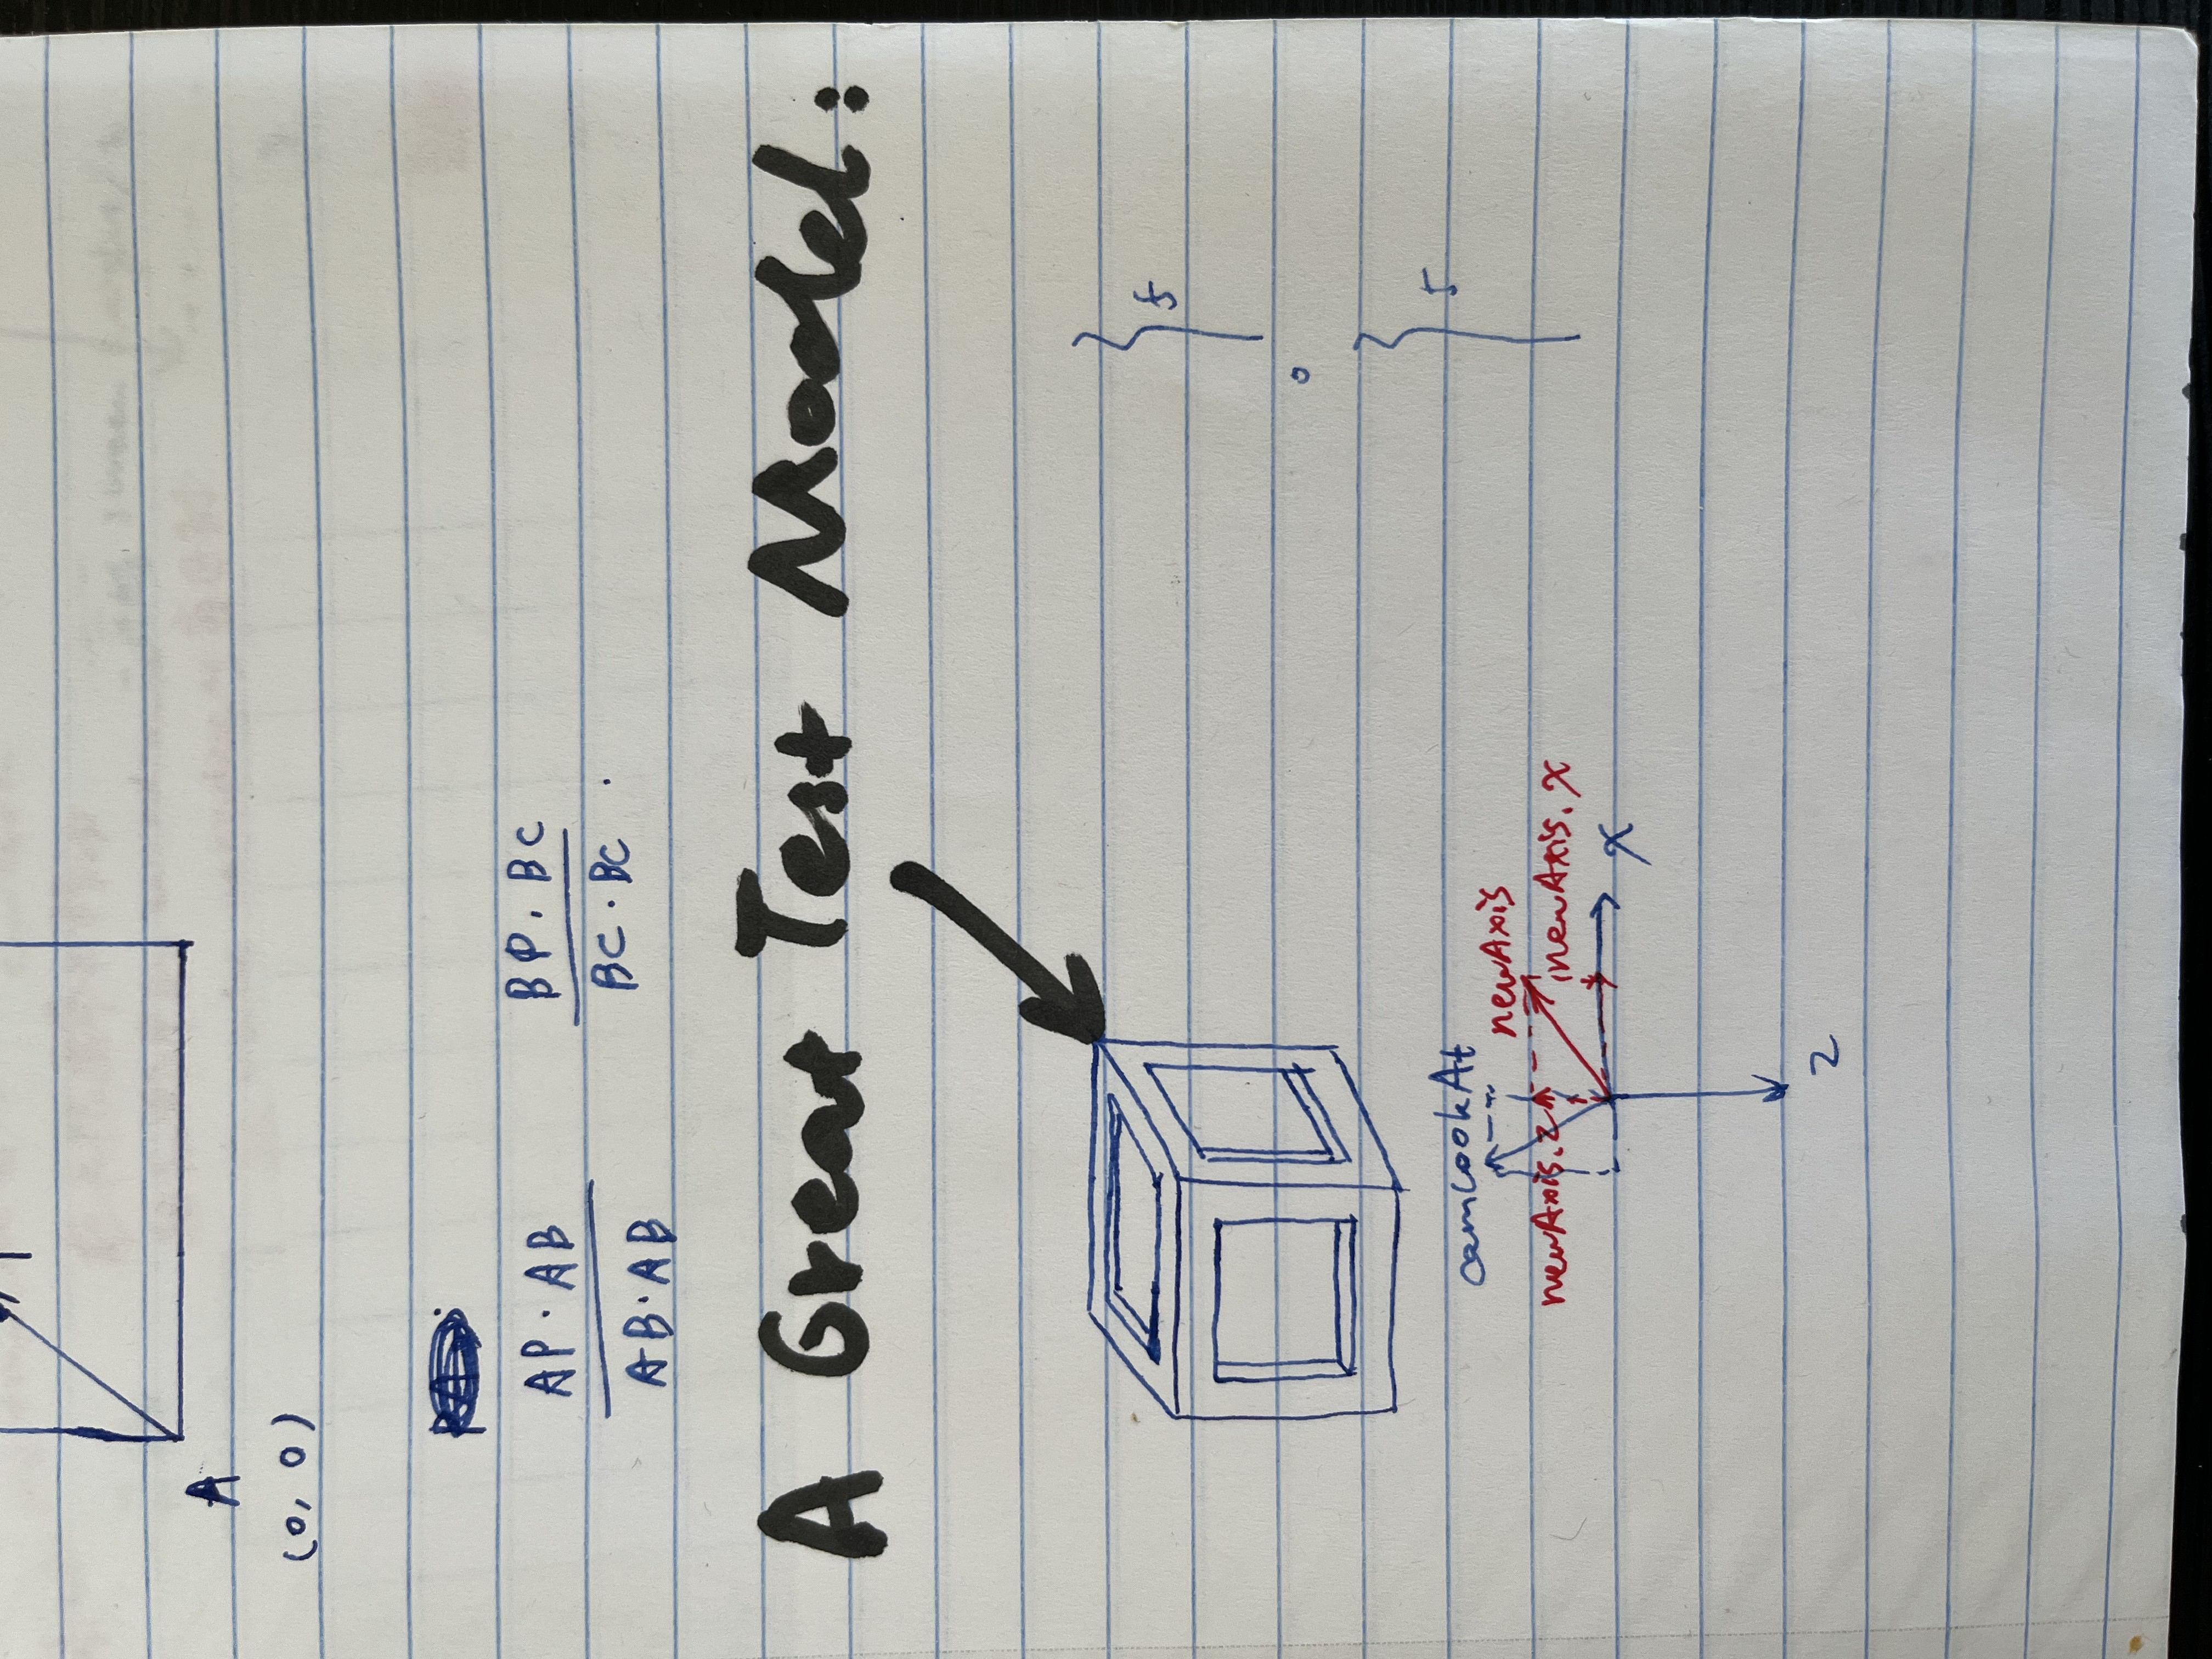 A
(0, 0)
AP · AB
AB · AB
BP . BC
BC · BC .
A Great Test Model:
5
0
5
camLookAt
newAxis
newAxis.z
newAxis.x
x
z